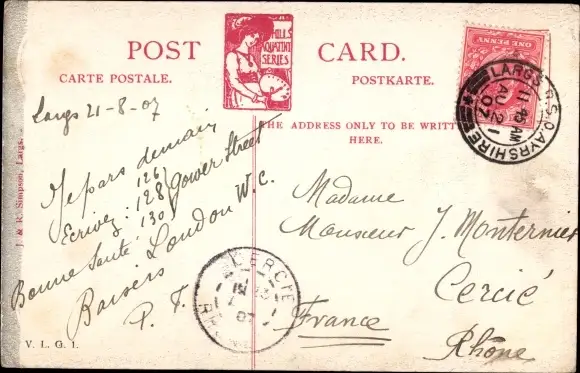 POST CARD.
CARTE POSTALE. POSTKARTE.
HILLS
QUALITY
SERIES
THE ADDRESS ONLY TO BE WRITTEN
HERE.
Largs 21-8-07
Je pars demain
Ecrivez : 126
128 Gower Street
130
London W.C.
Bonne Santé
Baisers
P. T.
Madame
Monsieur J. Monternier
Cercié
Rhône
France
ONE PENNY
LARGS R.S.O. AYRSHIRE
11 AM
AU 21
07
CERCIE
07
J. & R. Simpson, Largs.
V. L. G. 1.